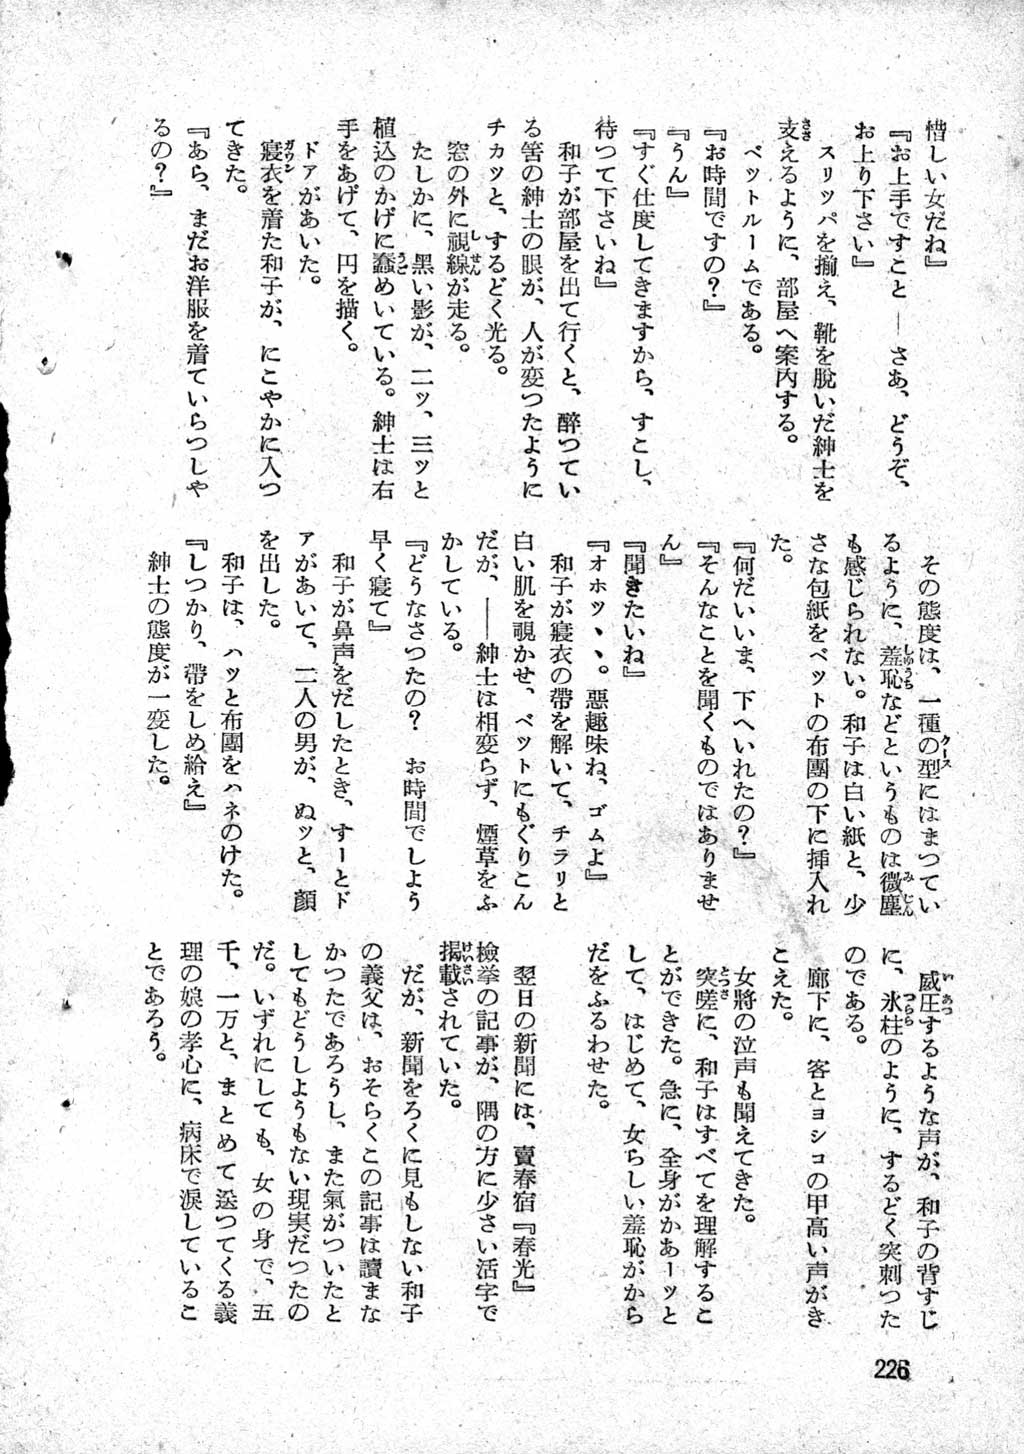 惜しい女だね』
『お上手ですこと――さあ、どうぞ、
お上り下さい』
スリッパを揃え、靴を脱いだ紳士を
支えるように、部屋へ案内する。
ベットルームである。
『お時間ですの？』
『うん』
『すぐ仕度してきますから、すこし、
待つて下さいね』
和子が部屋を出て行くと、醉つてい
る筈の紳士の眼が、人が変つたように
チカッと、するどく光る。
窓の外に視線が走る。
たしかに、黒い影が、二ッ、三ッと
植込のかげに蠢めいている。紳士は右
手をあげて、円を描く。
ドアがあいた。
寝衣を着た和子が、にこやかに入つ
てきた。
『あら、まだお洋服を着ていらつしや
るの？』
その態度は、一種の型にはまつてい
るように、羞恥などというものは微塵
も感じられない。和子は白い紙と、少
さな包紙をベットの布團の下に挿入れ
た。
『何だいいま、下へいれたの？』
『そんなことを聞くものではありませ
ん』
『聞きたいね』
『オホツヽヽ。惡趣味ね、ゴムよ』
和子が寝衣の帶を解いて、チラリと
白い肌を覗かせ、ベットにもぐりこん
だが、――紳士は相変らず、煙草をふ
かしている。
『どうなさつたの？　お時間でしよう
早く寝て』
和子が鼻声をだしたとき、すーとド
アがあいて、二人の男が、ぬッと、顔
を出した。
和子は、ハッと布團をハネのけた。
『しつかり、帶をしめ給え』
紳士の態度が一変した。
威圧するような声が、和子の背すじ
に、氷柱のように、するどく突刺つた
のである。
廊下に、客とヨシコの甲高い声がき
こえた。
女將の泣声も聞えてきた。
突嗟に、和子はすべてを理解するこ
とができた。急に、全身がかあーッと
して、はじめて、女らしい羞恥がから
だをふるわせた。
翌日の新聞には、賣春宿『春光』
檢挙の記事が、隅の方に少さい活字で
掲載されていた。
だが、新聞をろくに見もしない和子
の義父は、おそらくこの記事は讀まな
かつたであろうし、また氣がついたと
してもどうしようもない現実だつたの
だ。いずれにしても、女の身で、五
千、一万と、まとめて送つてくる義
理の娘の孝心に、病床で涙しているこ
とであろう。
226